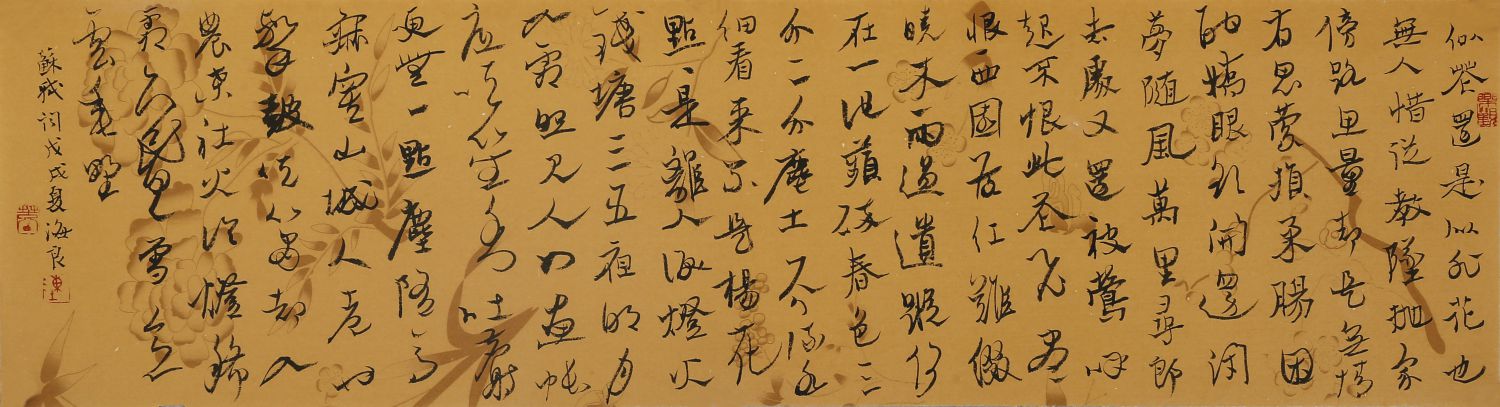 似花還是似非花也
無人惜從教墜抛家
傍路思量却是無情
有思縈損柔腸困
酣嬌眼欲開還閉
夢隨風萬里尋郎
去處又還被鶯呼
起不恨此花飛盡
恨西園落紅難綴
曉來雨過遺蹤何
在一池蘋碎春色三
分二分塵土一分流水
細看來不是楊花
點是離人淚燈火
錢塘三五夜明月
如霜照見人如畫帳
底吹笙香吐麝
更無一點塵隨馬
寂寞山城人老也
擊鼓吹簫却入
農桑社火冷燈稀
霜露雪意
雲垂野
蘇軾詞戊戌夏海良